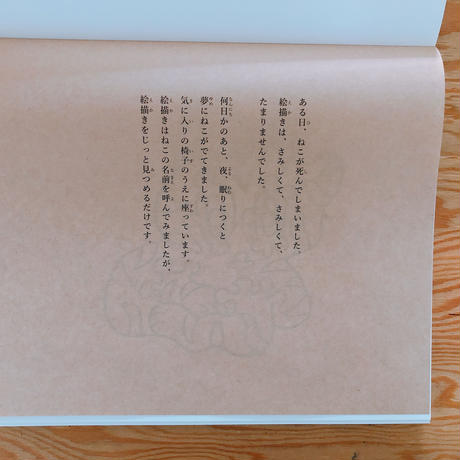 ある日、ねこが死んでしまいました。
絵描きは、さみしくて、さみしくて、
たまりませんでした。
何日かのあと、夜、眠りにつくと
夢にねこがでてきました。
気に入りの椅子のうえに座っています。
絵描きはねこの名前を呼んでみましたが、
絵描きをじっと見つめるだけです。